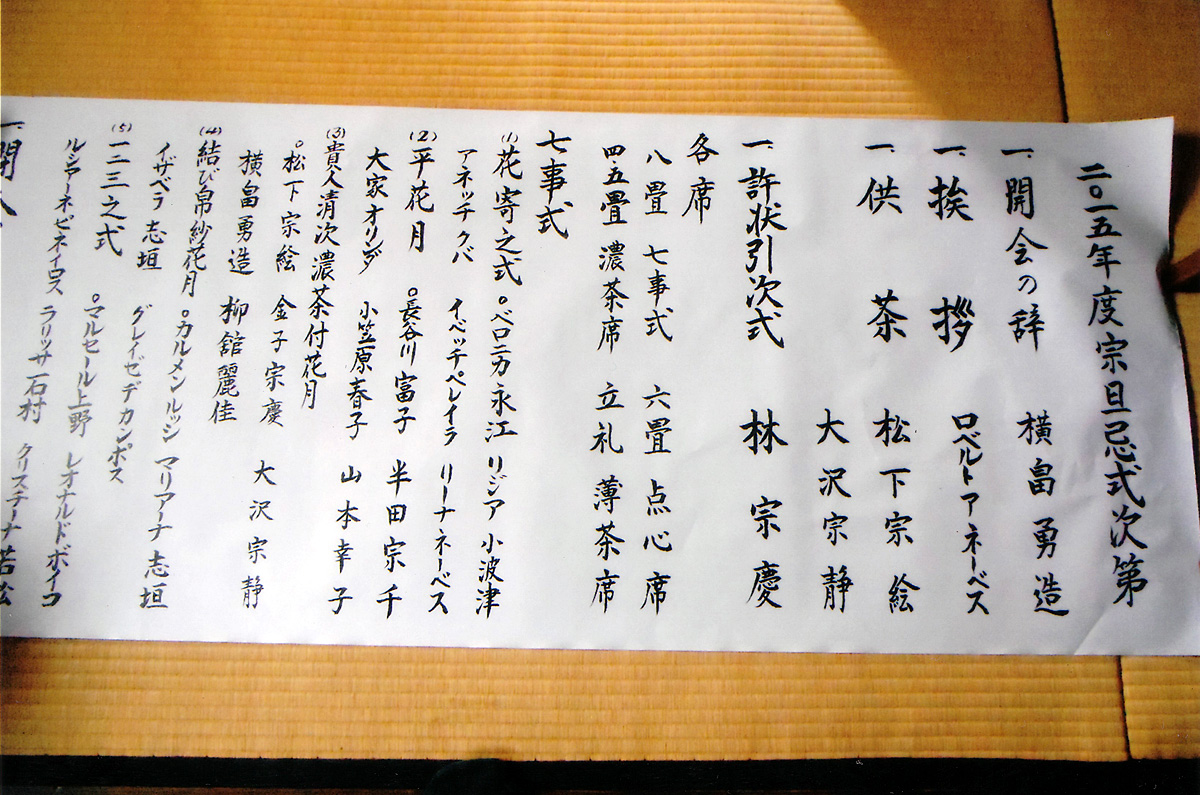 二〇一五年度宗旦忌式次第
一、開会の辞 横畠勇造
一、挨拶 ロベルトアネーベス
一、供茶 松下宗絵
大沢宗静
一、許状引次式 林宗慶
各席
八畳 七事式 六畳 点心席
四.五畳 濃茶席 立礼 薄茶席
七事式
(1)花寄之式 °ベロニカ永江 リジア小波津
アネッチクバ イベッチペレイラ リーナネーベス
(2)平花月 °長谷川富子 半田宗千
大家オリンダ 小笠原春子 山本幸子
(3)貴人清次濃茶付花月
°松下宗絵 金子宗慶 大沢宗静
横畠勇造 柳舘麗佳
(4)結び帛紗花月 °カルメンルッシ マリアーナ志垣
イザベラ志垣 グレイゼデカンポス
(5)一二三之式 °マルセール上野 レオナルドボイコ
ルシアーネピネイロス ラリッサ石村 クリスチーナ若松
一、閉会